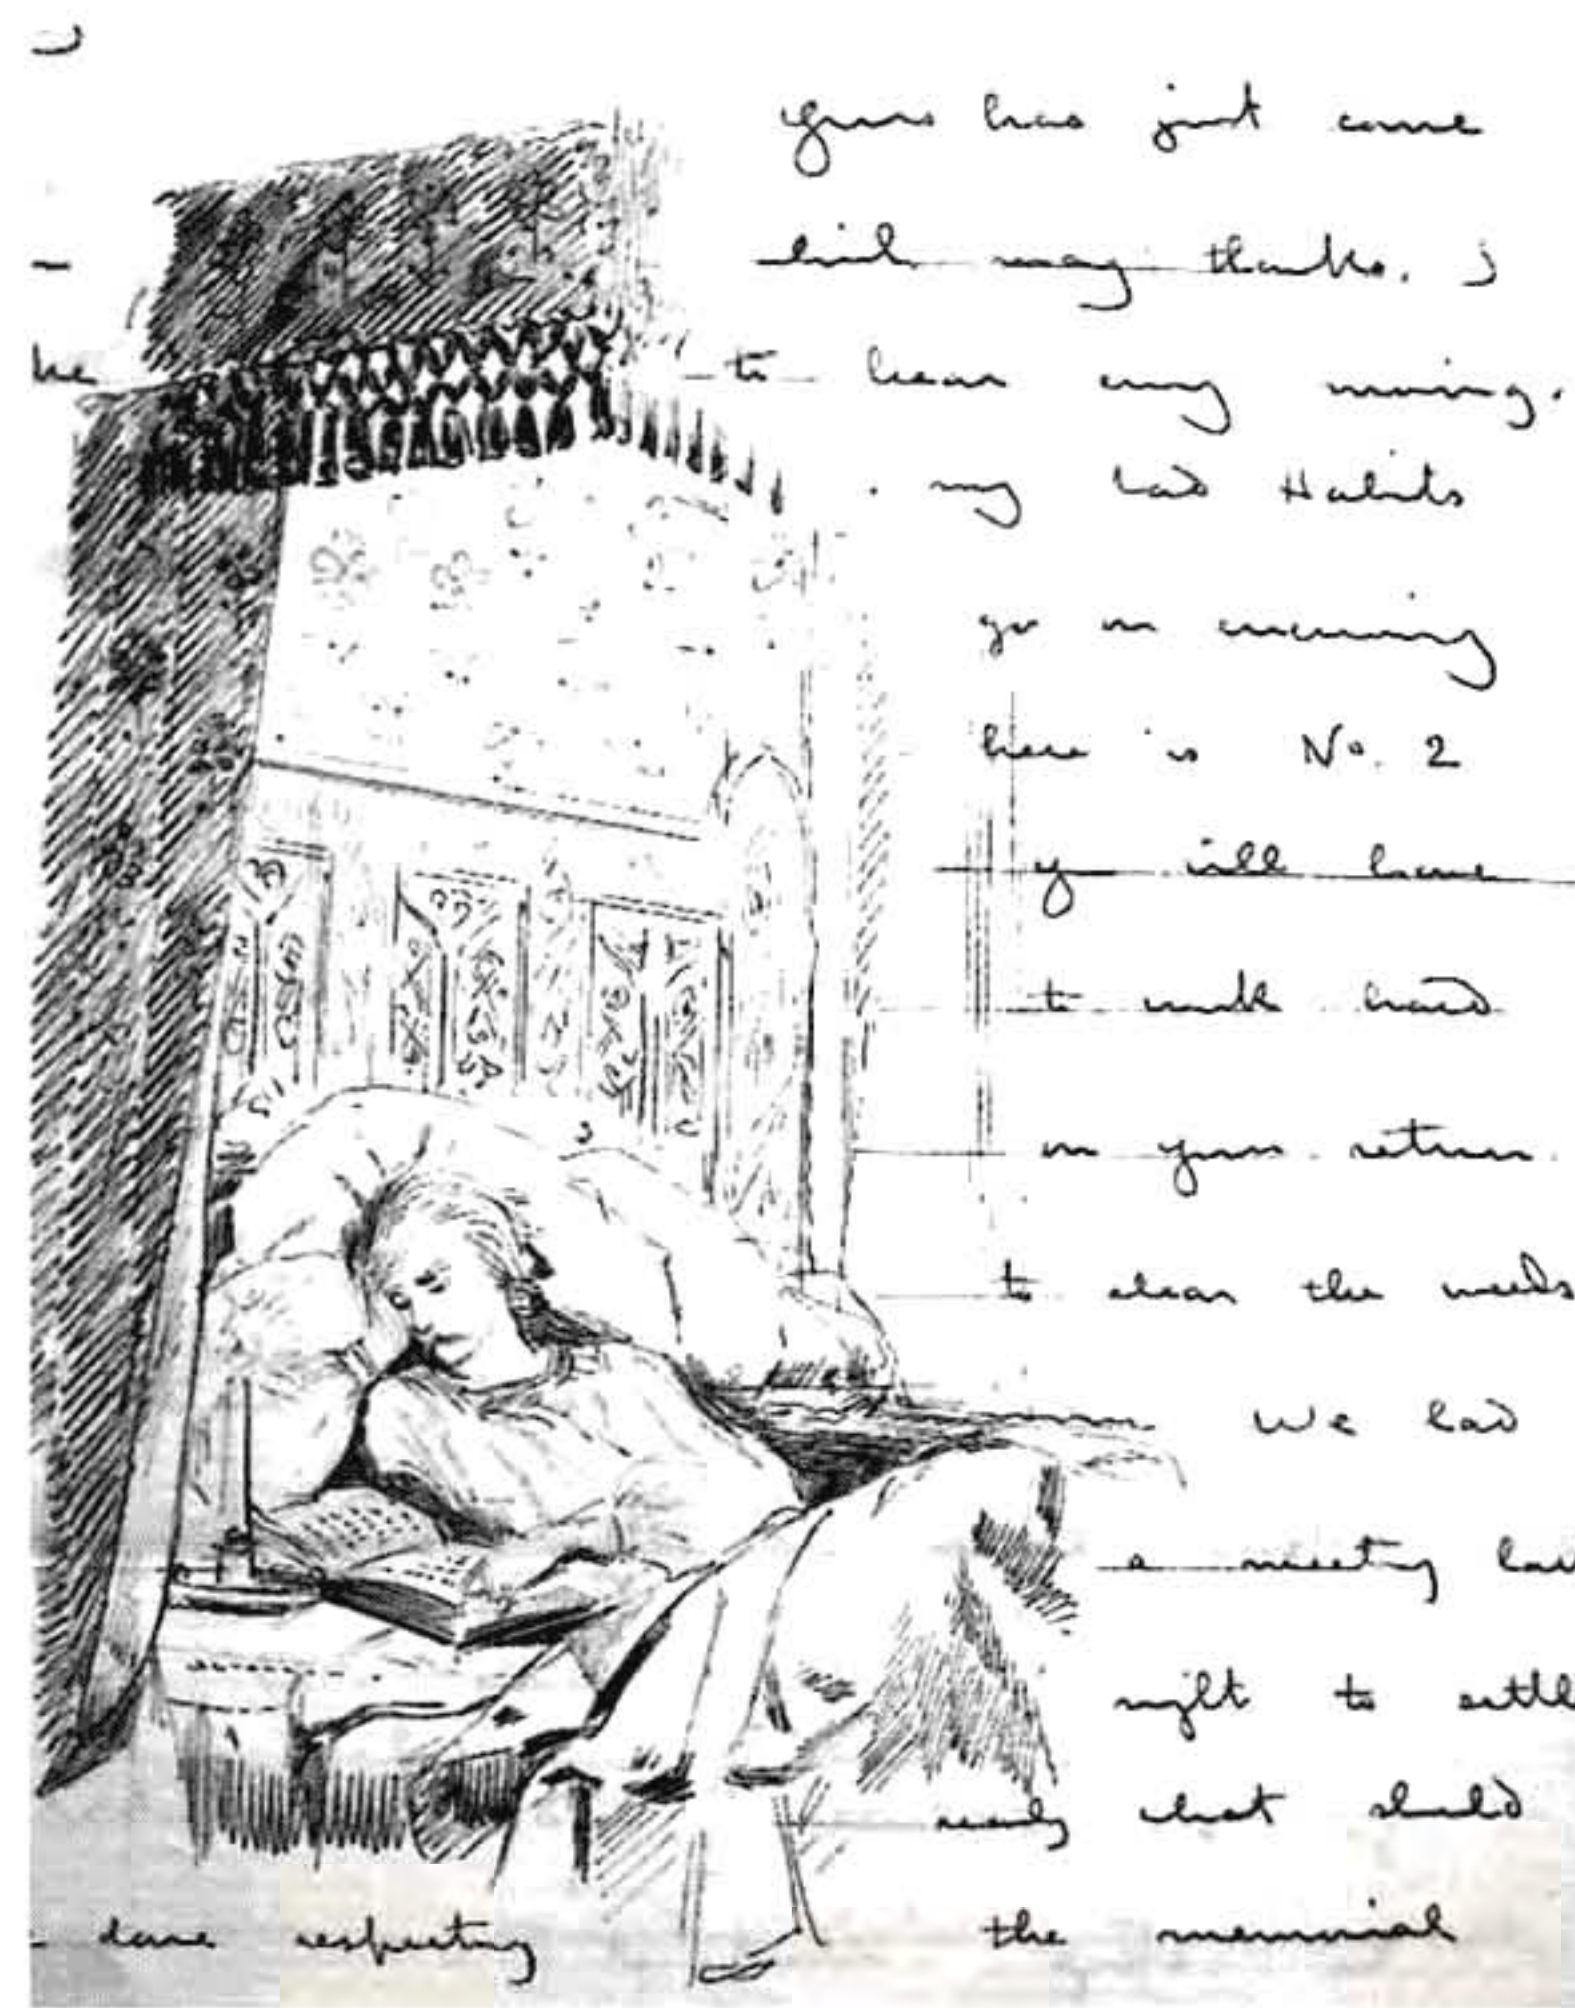 yours has just come
many thanks. I
he to hear any
my bad Habits
go on increasing
here is No. 2
y will have
to work hard
on your return
to clear the weeds
We had
a meeting
night to settle
really what should
done respecting the memorial